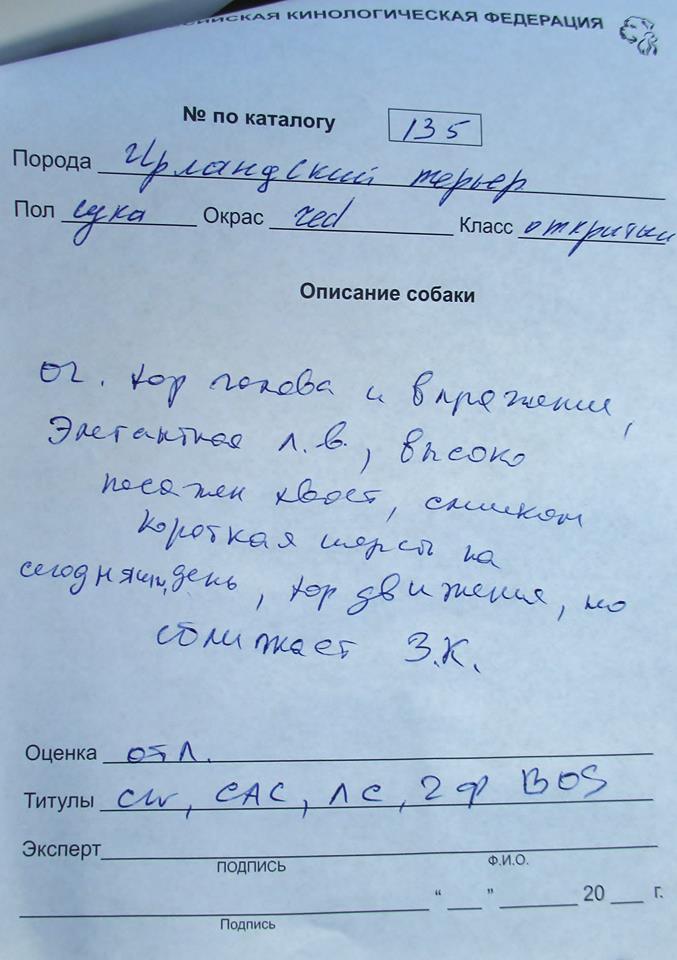 СИЙСКАЯ КИНОЛОГИЧЕСКАЯ ФЕДЕРАЦИЯ
№ по каталогу 135
Порода Ирландский терьер
Пол сука Окрас red Класс открытый
Описание собаки
оч. хор голова и выражение,
Элегантная л.в., высоко
посажен хвост, слишком
короткая шерсть на
сегодняшн. день, хор движения, но
сближает З.К.
Оценка отл.
Титулы CW, CAC, ЛС, 2Ф BOS
Эксперт
подпись Ф.И.О.
“ ” 20 г.
Подпись